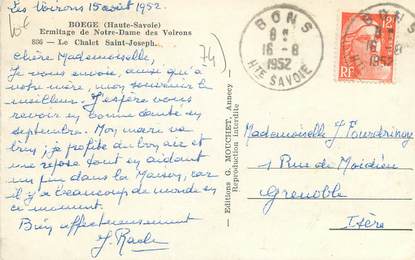 Les Voirons 15 août 1952.
BOEGE (Haute-Savoie)
Ermitage de Notre-Dame des Voirons
836 - Le Chalet Saint-Joseph.
74)
Chère Mademoiselle,
Je vous envoie, ainsi qu'à
votre mère, mon souvenir le
meilleur. J'espère vous
revoir en bonne santé en
septembre. Mon mari va
bien, je profite du bon air et
me repose tout en aidant
un peu dans la Maison, car
il y a beaucoup de monde en
ce moment.
Bien affectueusement
Editions G. MOUCHET, Annecy
Reproduction Interdite
BONS
8 H
16 - 8
1952
HTE SAVOIE
BONS
16 - 8
1952
HTE SAVOIE
12F
RF
Mademoiselle J. Fourdrinoy
1 Rue de Moidieu
Grenoble
Isère